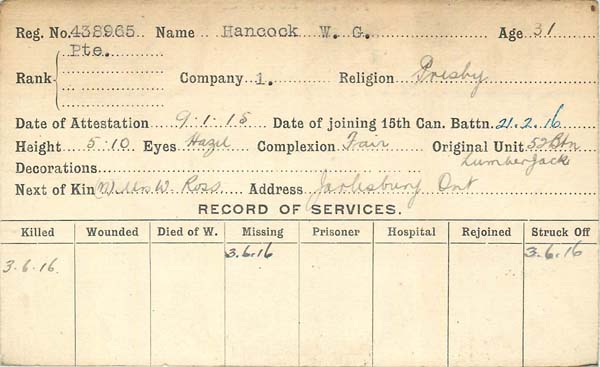 Reg. No. 438965 Name Hancock W. G. Age 31
Pte.
Rank Company 1. Religion Presby
Date of Attestation 9.1.15 Date of joining 15th Can. Battn. 21.2.16
Height 5.10 Eyes Hazel Complexion Fair Original Unit 52 Btn
Decorations Lumberjack
Next of Kin W. Ross Address Ont
RECORD OF SERVICES.
Killed Wounded Died of W. Missing Prisoner Hospital Rejoined Struck Off
3.6.16. 3.6.16 3.6.16